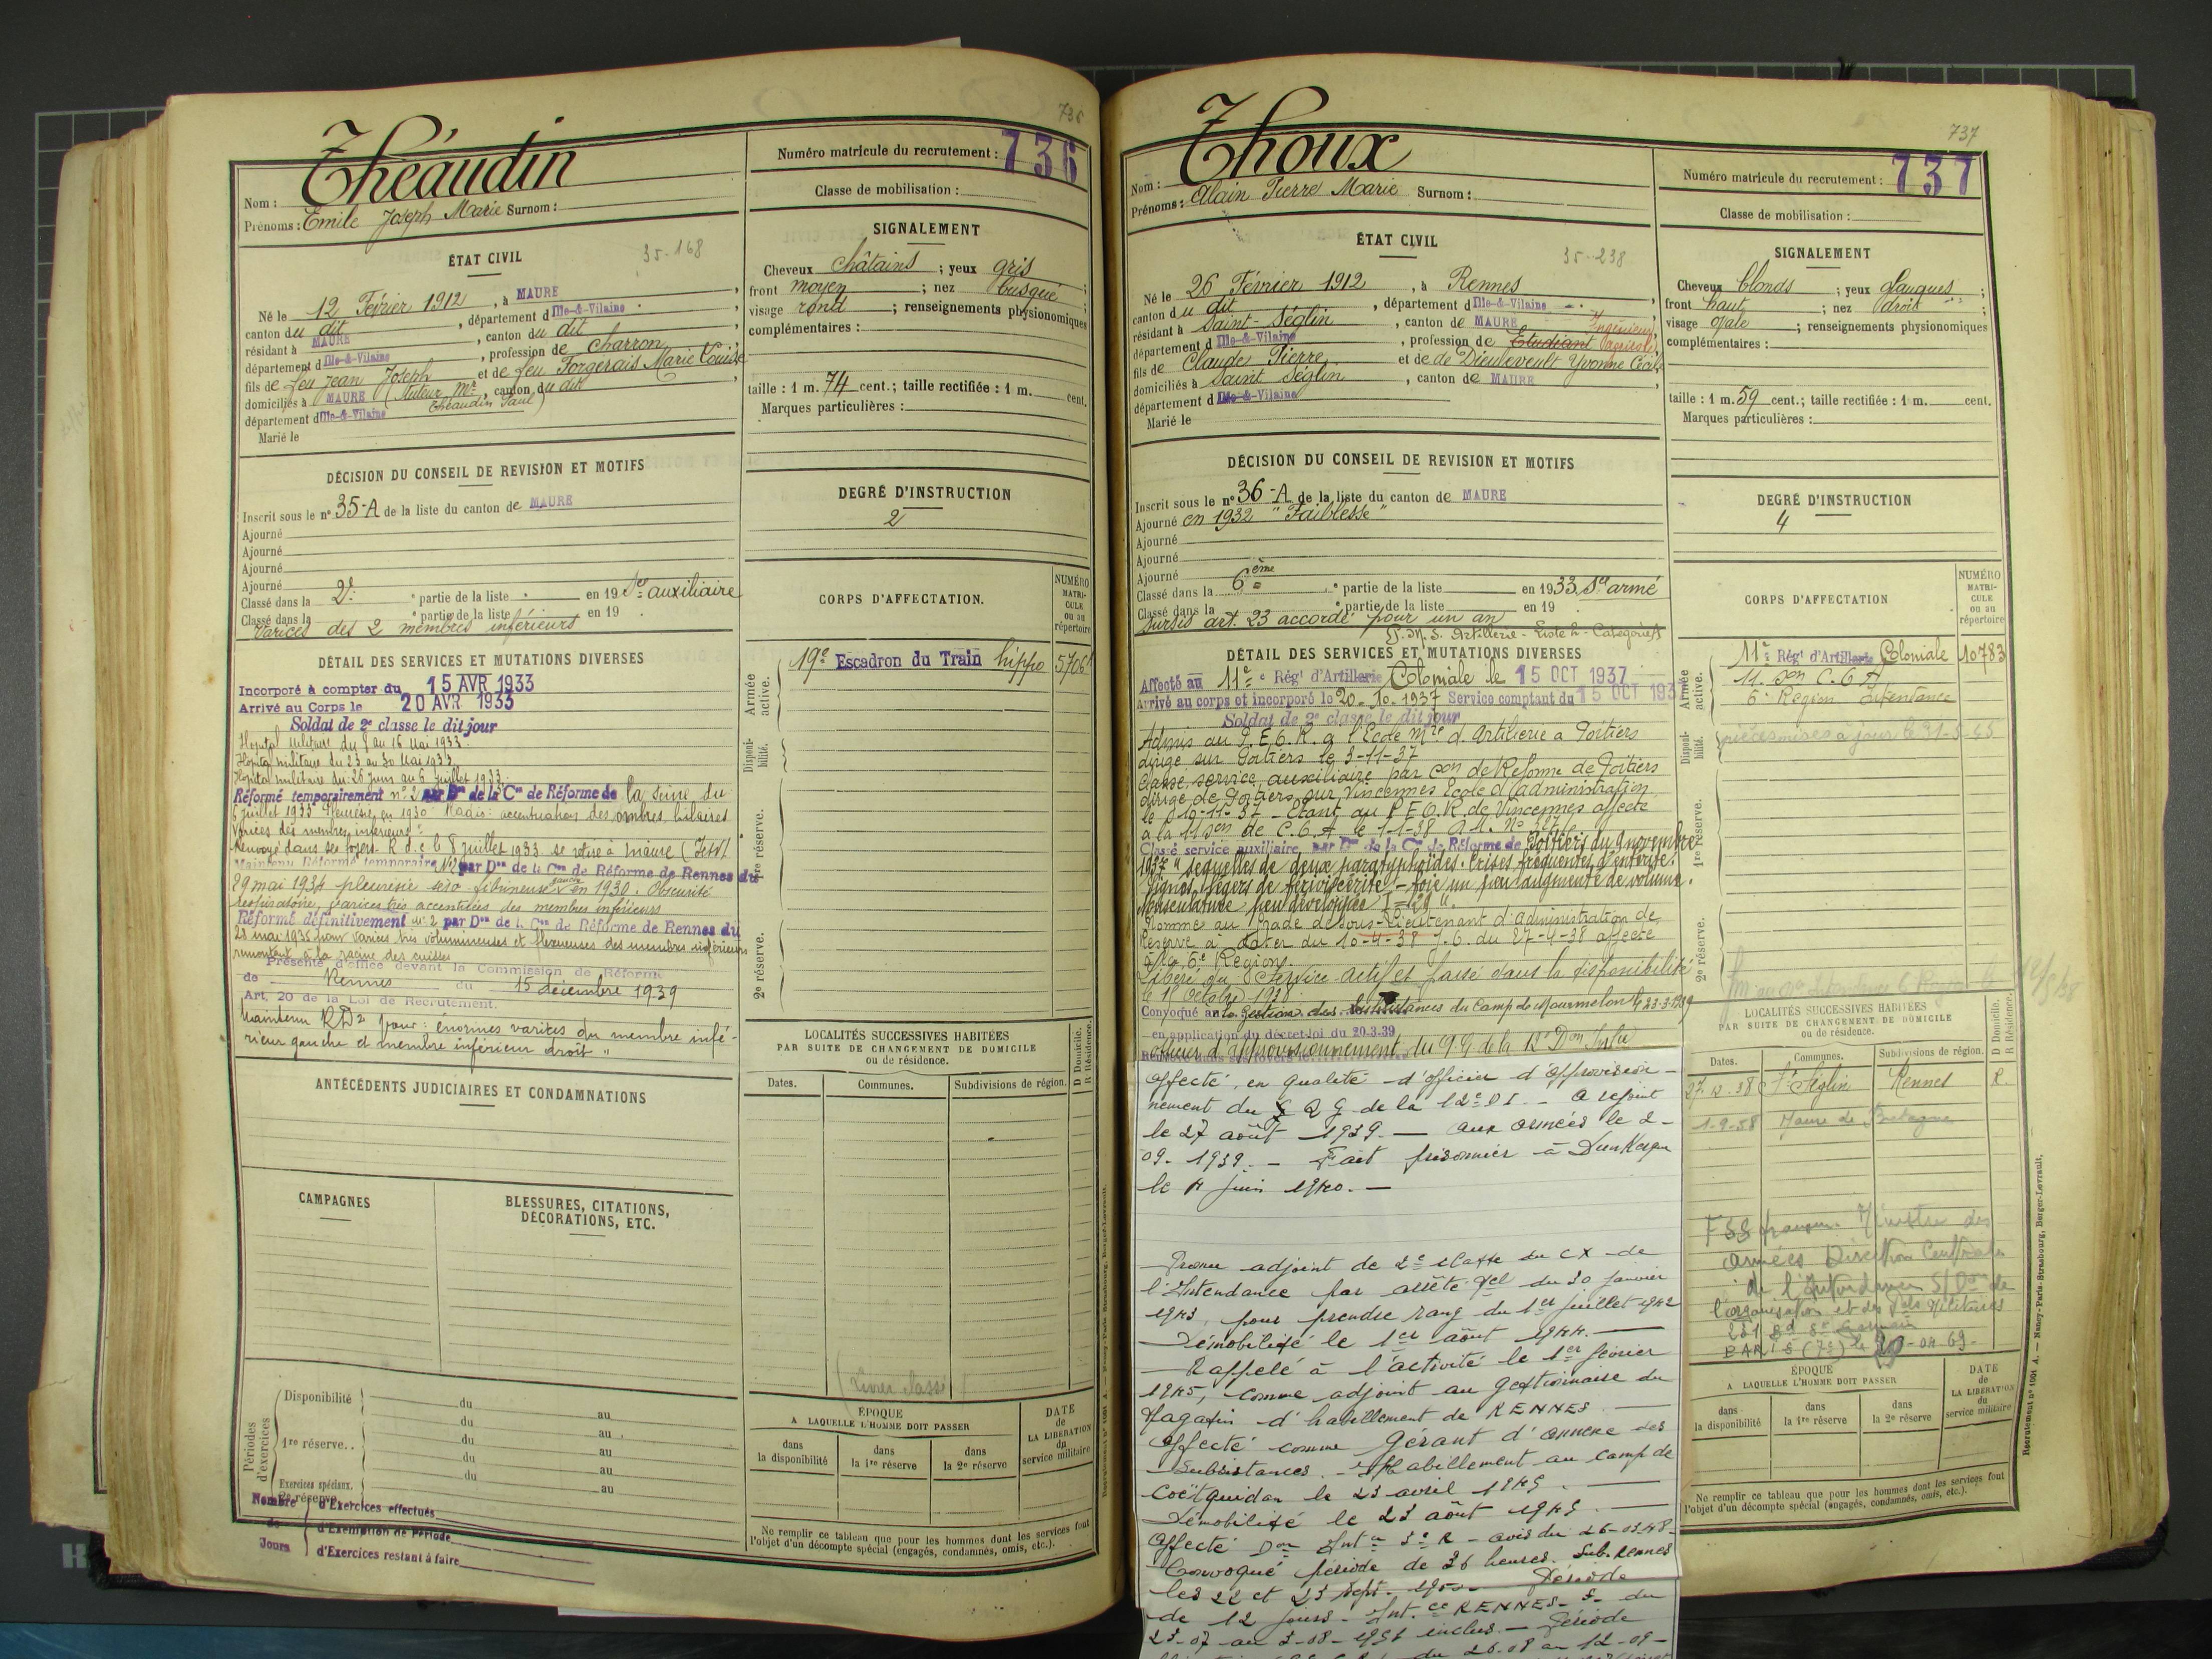 736
Théaudin
Nom :
Prénoms : Emile Joseph Marie Surnom :
Numéro matricule du recrutement : 736
Classe de mobilisation :
ÉTAT CIVIL
35-168
Né le 12 Février 1912, à MAURE,
canton du dit, département d Ille-&-Vilaine,
résidant à MAURE, canton du dit,
département d Ille-&-Vilaine, profession de charron
fils de feu Jean Joseph et de feu Forgerais Marie Louise
domiciliés à MAURE (Tuteur Mr, canton du dit
Théaudin Paul)
département d Ille-&-Vilaine
Marié le
SIGNALEMENT
Cheveux châtains ; yeux gris ;
front moyen ; nez busqué ;
visage rond ; renseignements physionomiques
complémentaires :
taille : 1 m. 74 cent.; taille rectifiée : 1 m. cent.
Marques particulières :
DÉCISION DU CONSEIL DE REVISION ET MOTIFS
Inscrit sous le n° 35-A de la liste du canton de MAURE
Ajourné
Ajourné
Ajourné
Ajourné
Classé dans la 2e partie de la liste en 19 Sce auxiliaire
Classé dans la partie de la liste en 19
Varices des 2 membres inférieurs
DEGRÉ D'INSTRUCTION
2
DÉTAIL DES SERVICES ET MUTATIONS DIVERSES
Incorporé à compter du 15 AVR 1933
Arrivé au Corps le 20 AVR 1933
Soldat de 2e classe le dit jour
Hopital militaire du 8 au 16 Mai 1933.
Hopital militaire du 23 au 30 Mai 1933
Hopital militaire du 26 juin au 6 juillet 1933.
Réformé temporairement n° 2 par Don de la Con de Réforme de la Seine du
6 juillet 1933 Pleurésie en 1930 Radio: accentuation des ombres hilaires
Varices des membres inférieurs
Renvoyé dans ses foyers R.d.c. le 8 juillet 1933 se retire à Maure (I et V)
Maintenu Réformé temporaire N°2 par Don de la Con de Réforme de Rennes du
29 mai 1934 pleurésie séro fibrineuse gauche en 1930. Obscurité
respiratoire, varices très accentuées des membres inférieurs
Réformé définitivement n° 2 par Don de la Con de Réforme de Rennes du
28 mai 1936 pour varices très volumineuses et flexueuses des membres inférieurs
remontant à la racine des cuisses
Présenté d'office devant la Commission de Réforme
de Rennes du 15 décembre 1939
Art. 20 de la Loi de Recrutement.
Maintenu RD2 pour : énormes varices du membre infé-
rieur gauche et membre inférieur droit "
CORPS D'AFFECTATION.
NUMÉRO MATRICULE ou au répertoire
Armée active.
19e Escadron du Train hippo 5706
Disponibilité.
1re réserve.
2e réserve.
ANTÉCÉDENTS JUDICIAIRES ET CONDAMNATIONS
CAMPAGNES
BLESSURES, CITATIONS,
DÉCORATIONS, ETC.
LOCALITÉS SUCCESSIVES HABITÉES
PAR SUITE DE CHANGEMENT DE DOMICILE
ou de résidence.
D Domicile. R Résidence.
Dates. Communes. Subdivisions de région.
Livret classé
Périodes d'exercices
Disponibilité du au
du au
1re réserve.. du au
du au
Exercices spéciaux. du au
2e réserve
Nombre de Jours
d'Exercices effectués
d'Exemption de Période
d'Exercices restant à faire
ÉPOQUE
A LAQUELLE L'HOMME DOIT PASSER
dans la disponibilité
dans la 1re réserve
dans la 2e réserve
DATE de LA LIBÉRATION du service militaire
Ne remplir ce tableau que pour les hommes dont les services font
l'objet d'un décompte spécial (engagés, condamnés, omis, etc.).
737
Thoux
Nom :
Prénoms : Alain Pierre Marie Surnom :
Numéro matricule du recrutement : 737
Classe de mobilisation :
ÉTAT CIVIL
35-238
Né le 26 Février 1912, à Rennes,
canton du dit, département d Ille-&-Vilaine
résidant à Saint-Séglin, canton de MAURE
Ingénieur
département d Ille-&-Vilaine, profession de Etudiant Agricole
fils de Claude Pierre et de de Dieuleveult Yvonne Cécile
domiciliés à Saint Séglin, canton de MAURE
département d Ille-&-Vilaine
Marié le
SIGNALEMENT
Cheveux blonds ; yeux glauques ;
front haut ; nez droit ;
visage ovale ; renseignements physionomiques
complémentaires :
taille : 1 m. 59 cent.; taille rectifiée : 1 m. cent.
Marques particulières :
DÉCISION DU CONSEIL DE REVISION ET MOTIFS
Inscrit sous le n° 36-A de la liste du canton de MAURE
Ajourné en 1932 "Faiblesse"
Ajourné
Ajourné
Ajourné
Classé dans la 6ème partie de la liste en 1933 Sce armé
Classé dans la partie de la liste en 19
Sursis art. 23 accordé pour un an
P.M.S. Artillerie - Liste 2 - Catégorie
DEGRÉ D'INSTRUCTION
4
DÉTAIL DES SERVICES ET MUTATIONS DIVERSES
Affecté au 11e Régt d'Artillerie Coloniale le 15 OCT 1937
Arrivé au corps et incorporé le 20.10.1937 Service comptant du 15 OCT 1937
Soldat de 2e classe le dit jour
Admis au P.E.O.R. à l'Ecole Mre d'Artillerie à Poitiers
dirigé sur Poitiers le 3-11-37
Classé service auxiliaire par Con de Réforme de Poitiers
dirigé de Poitiers sur Vincennes Ecole d'administration
le 10-11-37 - Etant au P.E.O.R. de Vincennes affecté
à la 11 Son de C.O.A. le 1-1-38
Classé service auxiliaire par Don de la Con de Réforme de Poitiers du 9 novembre
1937 "séquelles de deux paratyphoïdes. Crises fréquentes d'entérite.
Signes légers de périviscérite - foie un peu augmenté de volume.
Musculature peu développée I = 29".
Nommé au grade de Sous-Lieutenant d'administration de
Réserve à dater du 10-4-38 J.O. du 27-4-38 affecté
à la 6e Région.
Libéré du Service actif et passé dans la disponibilité
le 15 Octobre 1938
Convoqué à la Gestion des Subsistances du Camp de Mourmelon le 23-3-1939
en application du décret-loi du 20.3.39
Officier d'Approvisionnement du QG de la 12e Don Infie
affecté, en qualité d'officier d'approvision-
nement du QG de la 12e DI - a rejoint
le 27 août 1939. — aux armées le 2-
09-1939. — Fait prisonnier à Dunkerque
le 4 juin 1940. —
Promu adjoint de 2e classe du CX de
l'Intendance par arrêté du 30 janvier
1943, pour prendre rang du 1er juillet 1942
— Démobilisé le 1er août 1944. —
— Rappelé à l'activité le 1er février
1945, comme adjoint au gestionnaire du
Magasin d'habillement de RENNES. —
Affecté comme Gérant d'annexe des
Subsistances. - Habillement au camp de
Coëtquidan le 23 avril 1945. —
Démobilisé le 23 août 1945. —
Affecté Don Intce 3e R - avis du 26-03-48-
Convoqué période de 36 heures. Sub. Rennes
les 22 et 23 sept. Période
de 12 jours - Intce RENNES du
23-07 au 3-08-1951 inclus. — Période
du 26.08 au 12-09-
CORPS D'AFFECTATION
NUMÉRO MATRICULE ou au répertoire
Armée active.
11e Régt d'Artillerie Coloniale 10783
11. Son C.O.A
6e Région Intendance
Disponibilité.
pièces mises à jour le 31-5-45
1re réserve.
2e réserve.
LOCALITÉS SUCCESSIVES HABITÉES
PAR SUITE DE CHANGEMENT DE DOMICILE
ou de résidence.
D Domicile. R Résidence.
Dates. Communes. Subdivisions de région.
27.12.38 St Séglin Rennes R.
1-9-58 Maure de Bretagne
Ministre des
armées Direction Centrale
de l'Intendance
l'organisation et des Militaires
231 Bd St Germain
PARIS (7e) le -04-69-
ÉPOQUE
A LAQUELLE L'HOMME DOIT PASSER
dans la disponibilité
dans la 1re réserve
dans la 2e réserve
DATE de LA LIBÉRATION du service militaire
Ne remplir ce tableau que pour les hommes dont les services font
l'objet d'un décompte spécial (engagés, condamnés, omis, etc.).
Recrutement N° 1001 A. — Nancy-Paris-Strasbourg, Berger-Levrault.